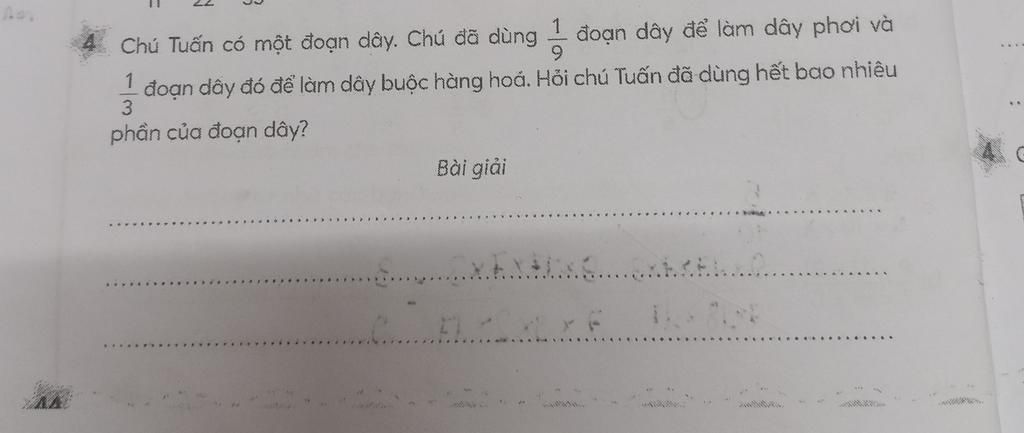 11 22 33
4 Chú Tuấn có một đoạn dây. Chú đã dùng 1/9 đoạn dây để làm dây phơi và
1/3 đoạn dây đó để làm dây buộc hàng hoá. Hỏi chú Tuấn đã dùng hết bao nhiêu
phần của đoạn dây?
Bài giải
4
44